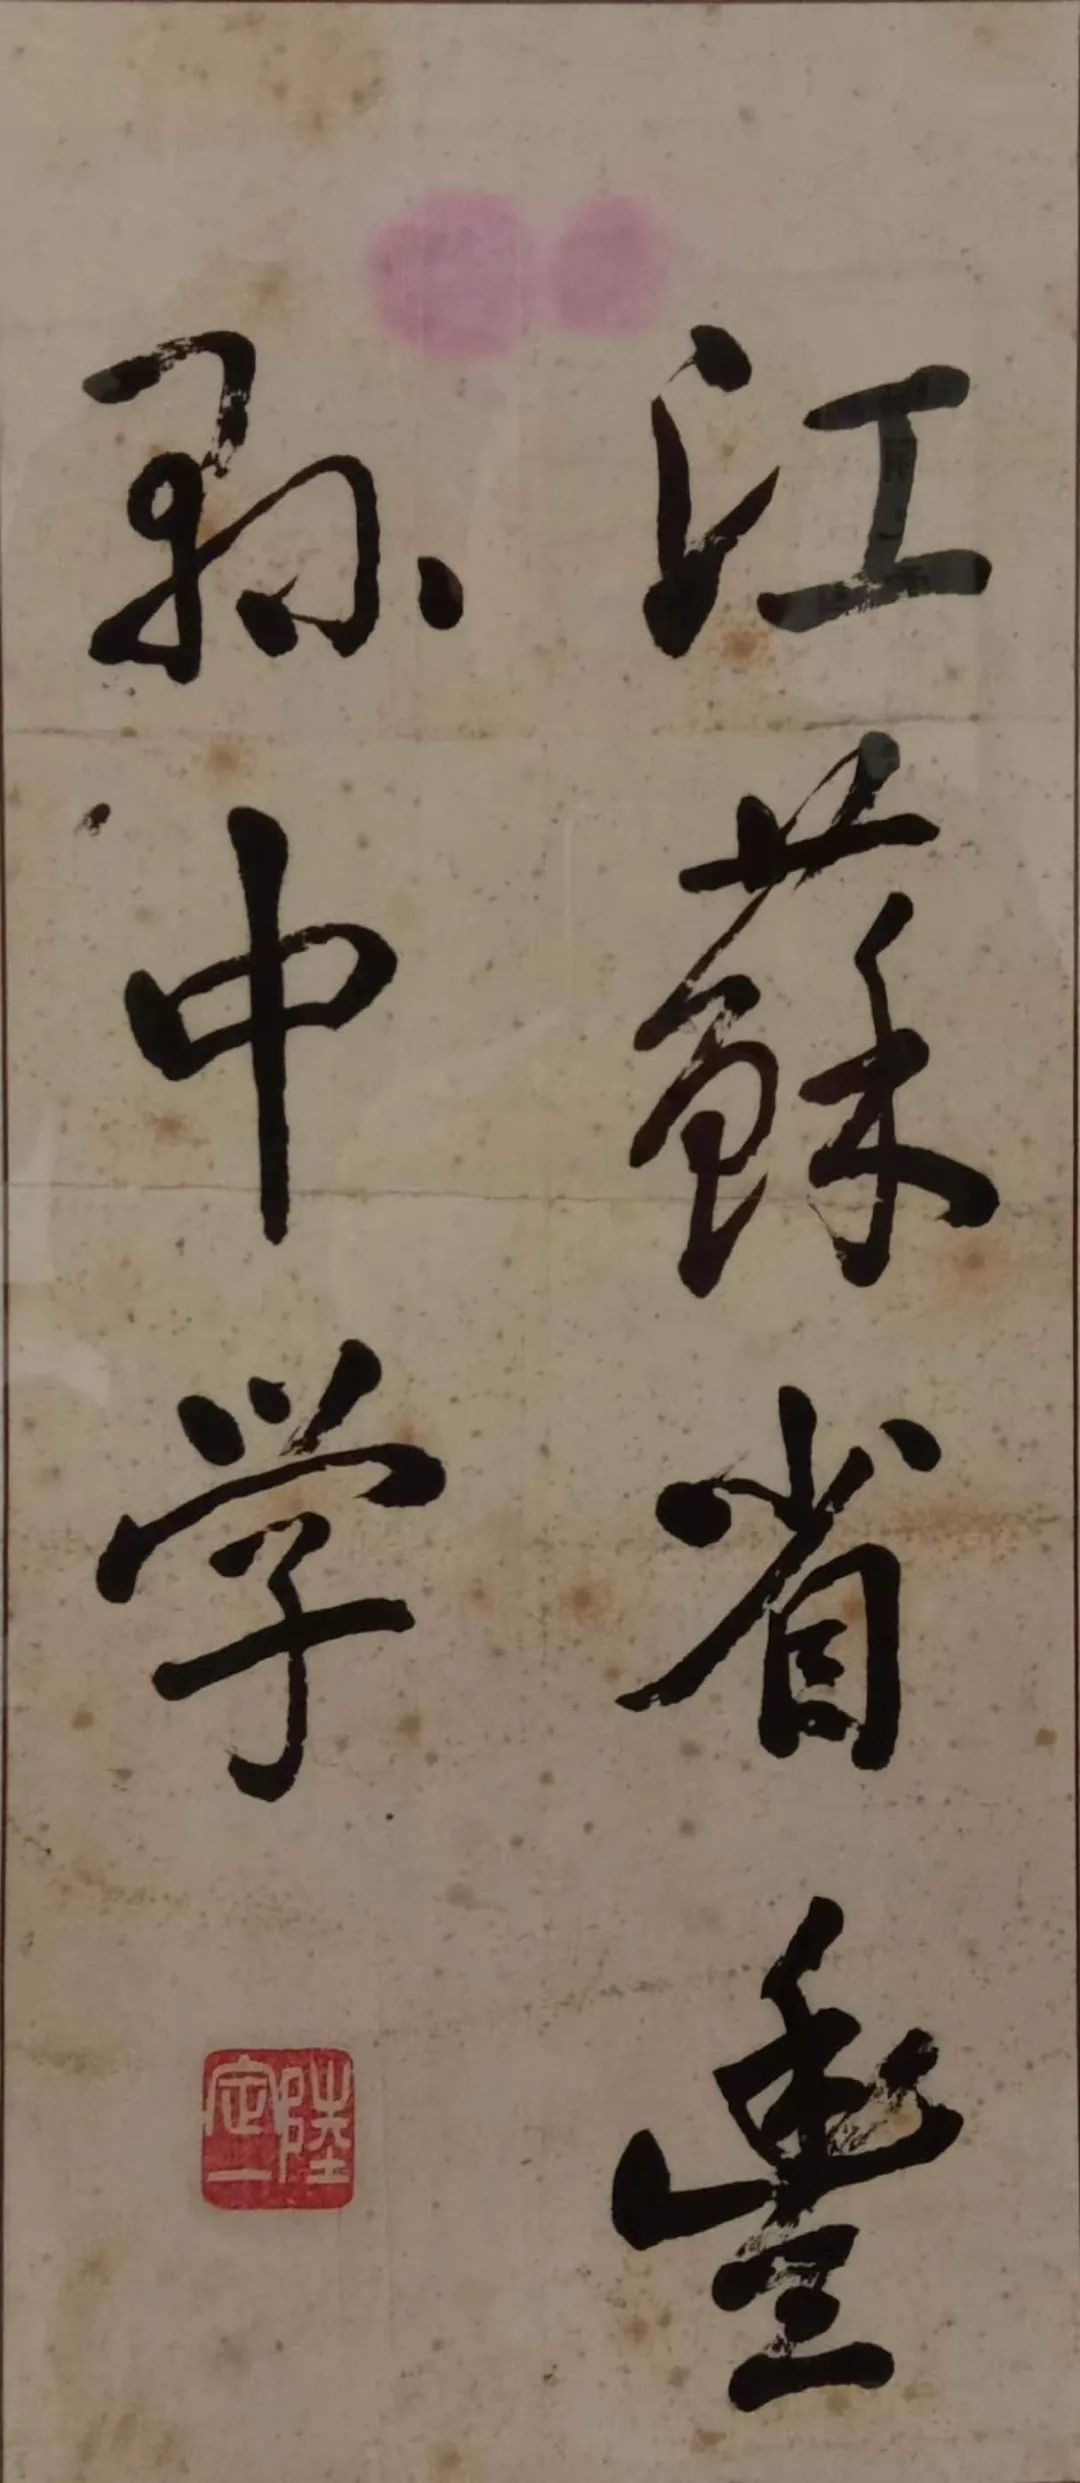 江蘇省豐
縣中学
陸定一